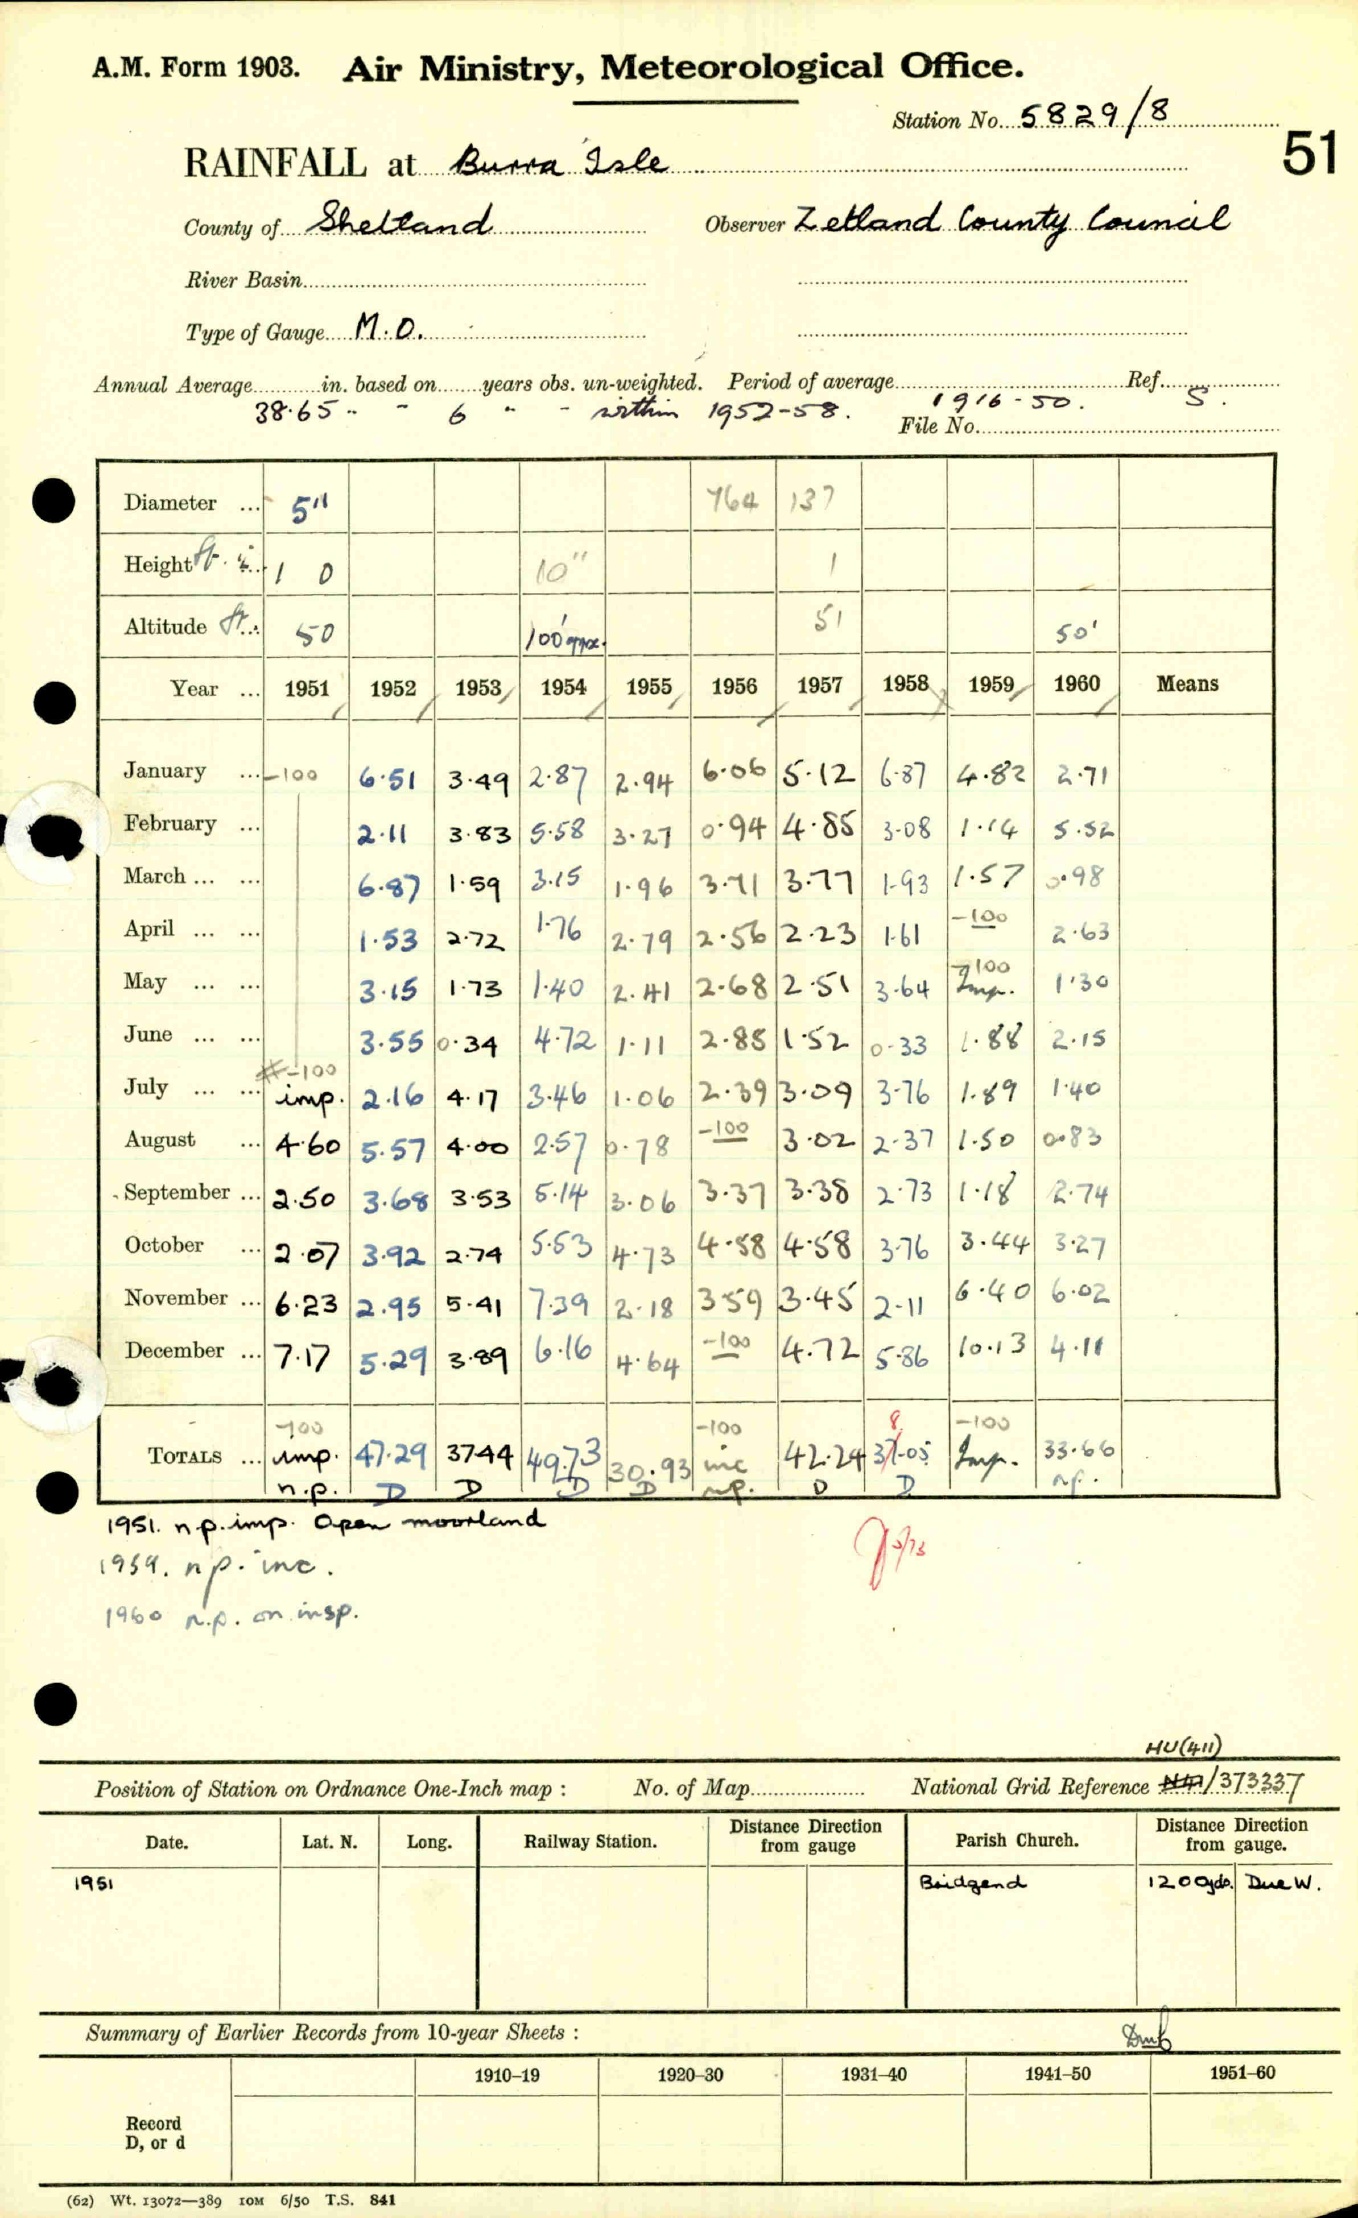 A.M. Form 1903. Air Ministry, Meteorological Office.
Station No. 5829/8
51
RAINFALL at Burra Isle
County of Shetland Observer Zetland County Council
River Basin
Type of Gauge M.O.
Annual Average in. based on years obs. un-weighted. Period of average Ref.
38.65 " " 6 " - within 1952-58. 1916-50. S.
File No.
Diameter ... 5" 764 137
Height ft. in. 1 0 10" 1
Altitude ft. 50 100' appx. 51 50'
Year ... 1951 1952 1953 1954 1955 1956 1957 1958 1959 1960 Means
January ... -100 6.51 3.49 2.87 2.94 6.06 5.12 6.87 4.82 2.71
February ... 2.11 3.83 5.58 3.27 0.94 4.85 3.08 1.14 5.52
March ... ... 6.87 1.59 3.15 1.96 3.71 3.77 1.93 1.57 0.98
April ... ... 1.53 2.72 1.76 2.79 2.56 2.23 1.61 -100 2.63
May ... ... 3.15 1.73 1.40 2.41 2.68 2.51 3.64 -100 Imp. 1.30
June ... ... 3.55 0.34 4.72 1.11 2.85 1.52 0.33 1.88 2.15
July ... ... # -100 imp. 2.16 4.17 3.46 1.06 2.39 3.09 3.76 1.89 1.40
August ... 4.60 5.57 4.00 2.57 0.78 -100 3.02 2.37 1.50 0.83
September ... 2.50 3.68 3.53 5.14 3.06 3.37 3.38 2.73 1.18 2.74
October ... 2.07 3.92 2.74 5.53 4.73 4.58 4.58 3.76 3.44 3.27
November ... 6.23 2.95 5.41 7.39 2.18 3.59 3.45 2.11 6.40 6.02
December ... 7.17 5.29 3.89 6.16 4.64 -100 4.72 5.86 10.13 4.11
-100 -100 8 -100
TOTALS ... imp. 47.29 37.44 49.73 30.93 inc 42.24 37.05 Imp. 33.66
n.p. D D D D n.p. D D n.p.
1951. n.p. imp. Open moorland
1959. n.p. inc.
1960 n.p. on insp.
HU(411)
Position of Station on Ordnance One-Inch map : No. of Map National Grid Reference /373337
Date. Lat. N. Long. Railway Station. Distance Direction from gauge Parish Church. Distance Direction from gauge.
1951 Bridgend 1200yds. Due W.
Summary of Earlier Records from 10-year Sheets :
1910–19 1920–30 1931–40 1941–50 1951–60
Record
D, or d
(62) Wt. 13072—389 10M 6/50 T.S. 841